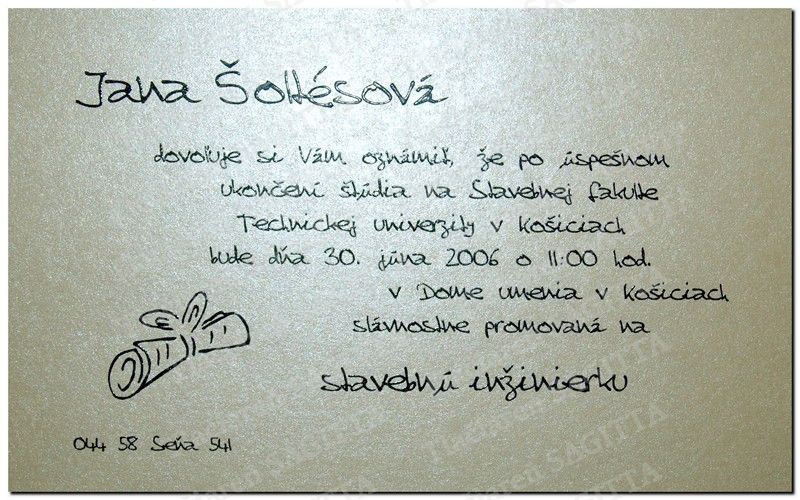 Jana Šoltésová
dovoľuje si Vám oznámiť, že po úspešnom
ukončení štúdia na Stavebnej fakulte
Technickej univerzity v Košiciach
bude dňa 30. júna 2006 o 11:00 hod.
v Dome umenia v Košiciach
slávnostne promovaná na
stavebnú inžinierku
044 58 Seňa 541